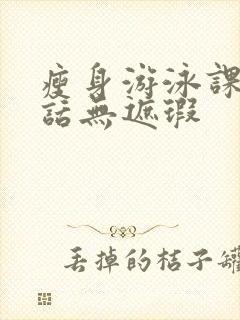 瘦身游泳課
話無遮瑕
丟掉的桔子罐